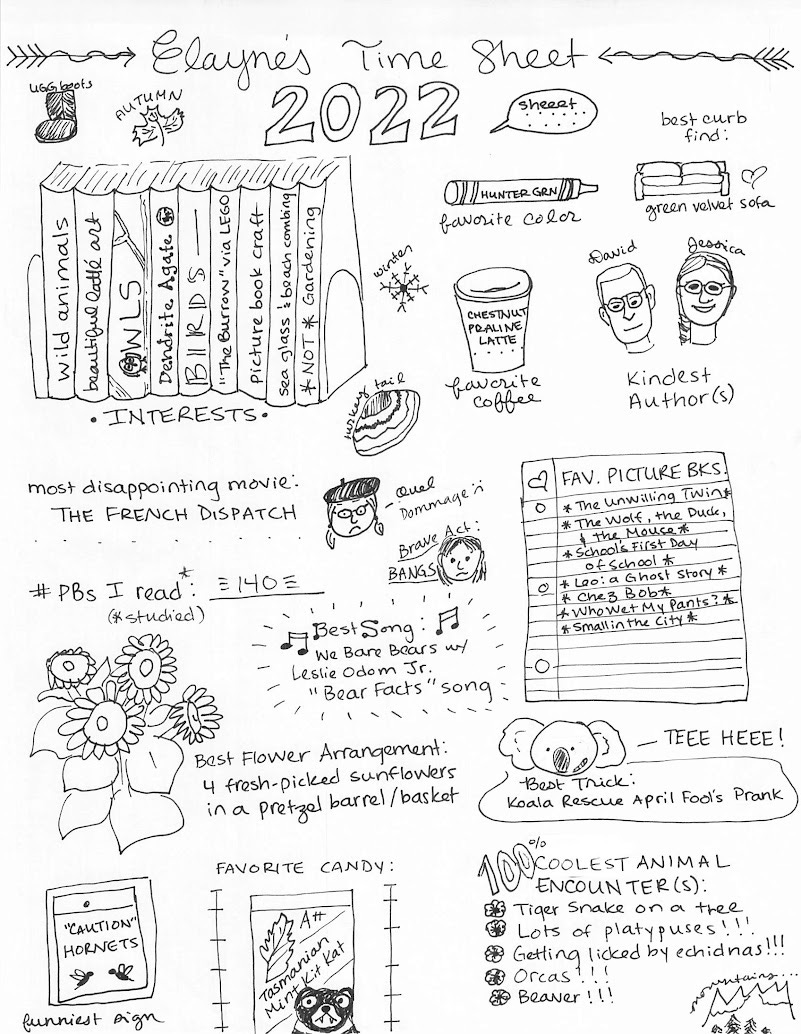 Elayne's Time Sheet
2022
UGG boots
AUTUMN
sheeet
best curb
find:
green velvet sofa
HUNTER GRN
favorite color
Wild animals
beautiful latté art
OWLS
Dendrite Agate
BIRDS
"The Burrow" via LEGO
Picture book craft
sea glass & beach combing
*NOT* Gardening
• INTERESTS •
winter
CHESTNUT
PRALINE
LATTE
favorite
coffee
David
Jessica
Kindest
Author(s)
turkey tail
most disappointing movie:
THE FRENCH DISPATCH
Quel
Dommage :(
Brave Act:
BANGS
# PBs I read*: 140
(*studied)
FAV. PICTURE BKS.
* The Unwilling Twin*
* The Wolf, the Duck,
& the Mouse *
* School's First Day
of School *
* Leo: a Ghost Story *
* Chez Bob*
* Who Wet My Pants? *
* Small in the City *
Best Song:
We Bare Bears w/
Leslie Odom Jr.
"Bear Facts" song
Best Flower Arrangement:
4 fresh-picked sunflowers
in a pretzel barrel/basket
— TEEE HEEE!
Best Trick:
Koala Rescue April Fool's Prank
"CAUTION"
HORNETS
funniest sign
FAVORITE CANDY:
A++
Tasmanian
Mint Kit Kat
100% COOLEST ANIMAL
ENCOUNTER(S):
Tiger Snake on a tree
Lots of platypuses!!!
Getting licked by echidnas!!!
Orcas!!!
Beaver!!!
mountains...